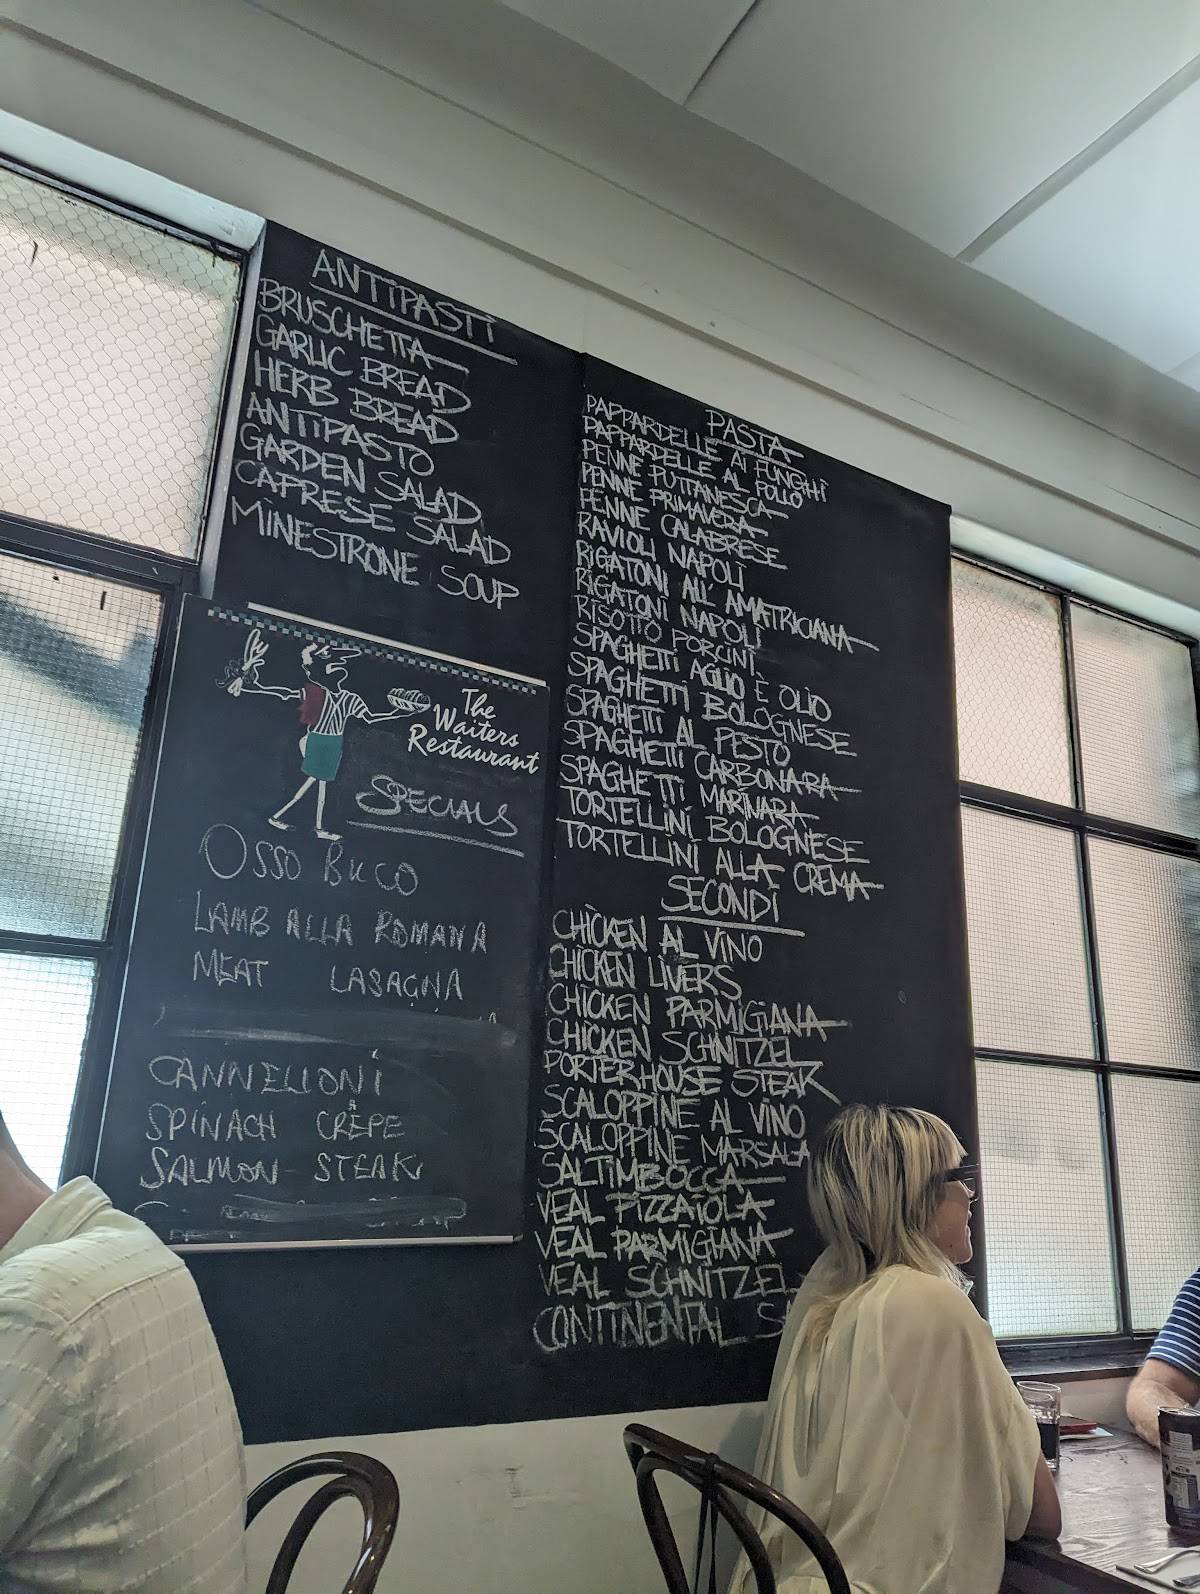 ANTIPASTI
BRUSCHETTA
GARLIC BREAD
HERB BREAD
ANTIPASTO
GARDEN SALAD
CAPRESE SALAD
MINESTRONE SOUP
The
Waiters
Restaurant
SPECIALS
OSSO BUCO
LAMB ALLA ROMANA
MEAT LASAGNA
CANNELLONI
SPINACH CRÊPE
SALMON STEAK
PASTA
PAPPARDELLE AI FUNGHI
PAPPARDELLE AL POLLO
PENNE PUTTANESCA
PENNE PRIMAVERA
PENNE CALABRESE
RAVIOLI NAPOLI
RIGATONI ALL AMATRICIANA
RIGATONI NAPOLI
RISOTTO PORCINI
SPAGHETTI AGLIO È OLIO
SPAGHETTI BOLOGNESE
SPAGHETTI AL PESTO
SPAGHETTI CARBONARA
SPAGHETTI MARINARA
TORTELLINI BOLOGNESE
TORTELLINI ALLA CREMA
SECONDI
CHICKEN AL VINO
CHICKEN LIVERS
CHICKEN PARMIGIANA
CHICKEN SCHNITZEL
PORTERHOUSE STEAK
SCALOPPINE AL VINO
SCALOPPINE MARSALA
SALTIMBOCCA
VEAL PIZZAIOLA
VEAL PARMIGIANA
VEAL SCHNITZEL
CONTINENTAL